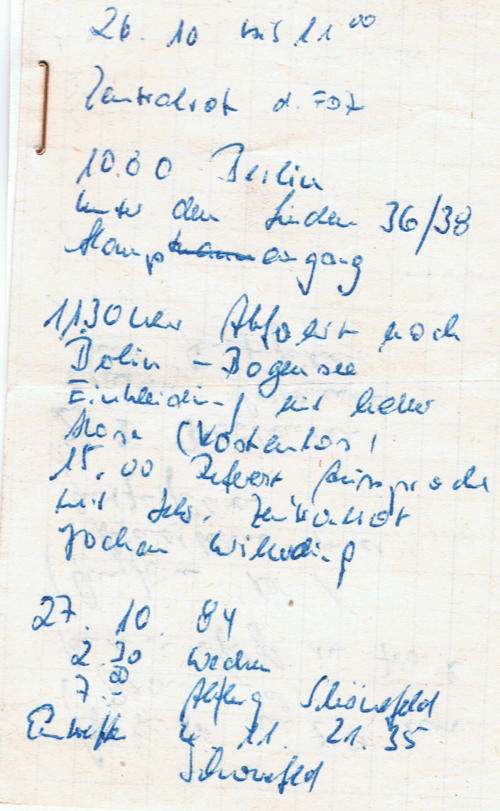 26. 10 bis 11 00
Zentralrat d. FDJ
1080 Berlin
Unter den Linden 36/38
Haupteingang
11.30 Uhr Abfahrt nach
Berlin - Bogensee
Einkleidung mit heller
Hose (kostenlos)
15.00 Referat Aussprache
mit Sekr. Zentralrat
Jochen Willerding
27. 10. 84
2.30 wecken
7.00 Abflug Schönefeld
Eintreffen 4. 11. 21.35
Schönefeld